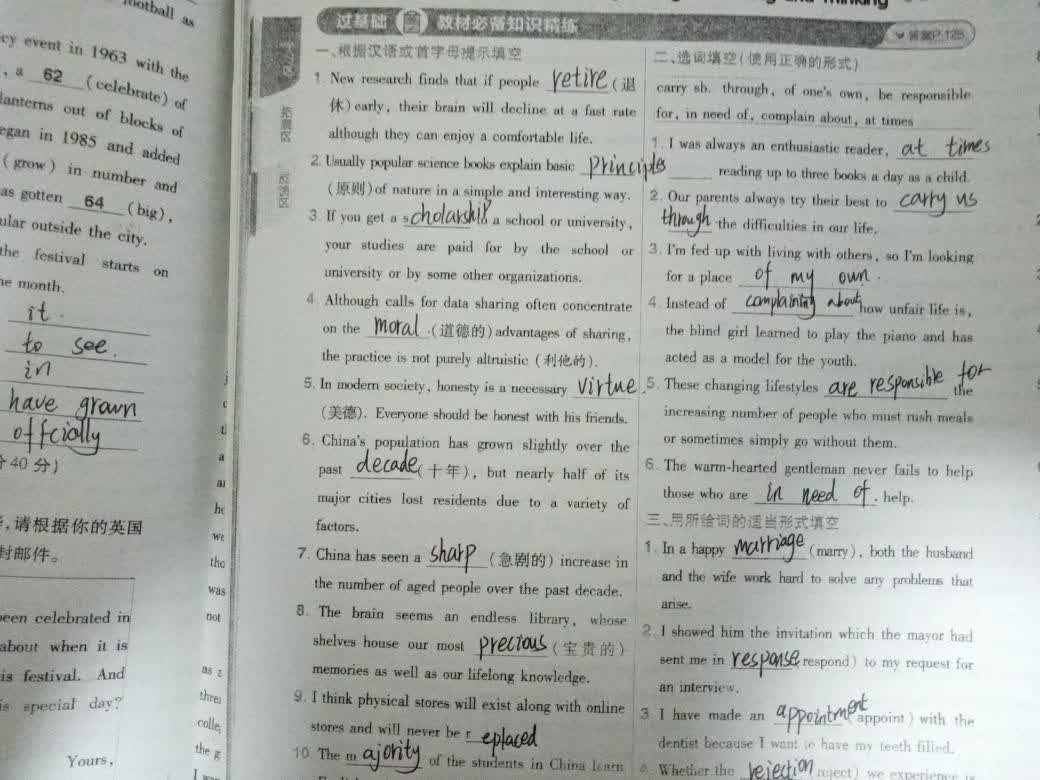 football as
cy event in 1963 with the
, a 62 (celebrate) of
lanterns out of blocks of
egan in 1985 and added
(grow) in number and
as gotten 64 (big),
ular outside the city.
the festival starts on
he month.
it.
to see.
in
have grown
offcially
个40分)
,请根据你的英国
封邮件。
been celebrated in
about when it is
is festival. And
is special day?
Yours,
we
tho
was
not
as
thre
colle
the g
拓展区
and Thinking
过基础 教材必备知识精练
答案P.125
一、根据汉语或首字母提示填空
1. New research finds that if people retire (退
休) early, their brain will decline at a fast rate
although they can enjoy a comfortable life.
2. Usually popular science books explain basic principles
(原则) of nature in a simple and interesting way.
3. If you get a scholarship to a school or university,
your studies are paid for by the school or
university or by some other organizations.
4. Although calls for data sharing often concentrate
on the moral (道德的) advantages of sharing,
the practice is not purely altruistic (利他的).
5. In modern society, honesty is a necessary virtue
(美德). Everyone should be honest with his friends.
6. China's population has grown slightly over the
past decade (十年), but nearly half of its
major cities lost residents due to a variety of
factors.
7. China has seen a sharp (急剧的) increase in
the number of aged people over the past decade.
8. The brain seems an endless library, whose
shelves house our most precious (宝贵的)
memories as well as our lifelong knowledge.
9. I think physical stores will exist along with online
stores and will never be r eplaced
10. The m ajority of the students in China learn
二、选词填空(使用正确的形式)
carry sb. through, of one's own, be responsible
for, in need of, complain about, at times
1. I was always an enthusiastic reader, at times
reading up to three books a day as a child.
2. Our parents always try their best to carry us
through the difficulties in our life.
3. I'm fed up with living with others, so I'm looking
for a place of my own.
4. Instead of complaining about how unfair life is,
the blind girl learned to play the piano and has
acted as a model for the youth.
5. These changing lifestyles are responsible for the
increasing number of people who must rush meals
or sometimes simply go without them.
6. The warm-hearted gentleman never fails to help
those who are in need of. help.
三、用所给词的适当形式填空
1. In a happy marriage (marry), both the husband
and the wife work hard to solve any problems that
arise.
2. I showed him the invitation which the mayor had
sent me in response respond) to my request for
an interview.
3. I have made an appointment (appoint) with the
dentist because I want to have my teeth filled.
Whether the rejection reject) we experience is